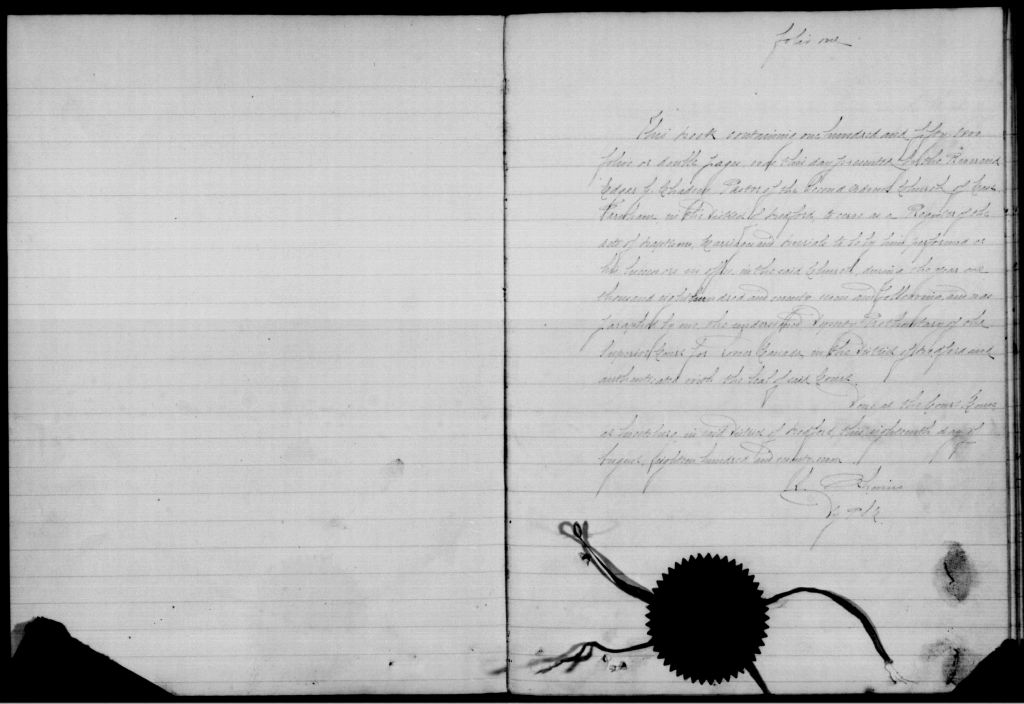 folio one
This book containing one hundred and fifty two
folios or double pages, was this day presented by the Reverend
Edgar Pastor of the Second Advent Church of East
Farnham in the District of Bedford, to serve as a Register of the
acts of baptism, Marriage and burials to be by him performed or
his successors in office, in the said Church, during the year one
thousand eight hundred and ninety seven and following, and was
paraphed by me, the undersigned Deputy Prothonotary of the
Superior Court for Lower Canada, in the District of Bedford and
authenticated with the Seal of said Court.
Done at the Court House
at Sweetsburg, in said District of Bedford, this eighteenth day of
August, Eighteen hundred and ninety seven